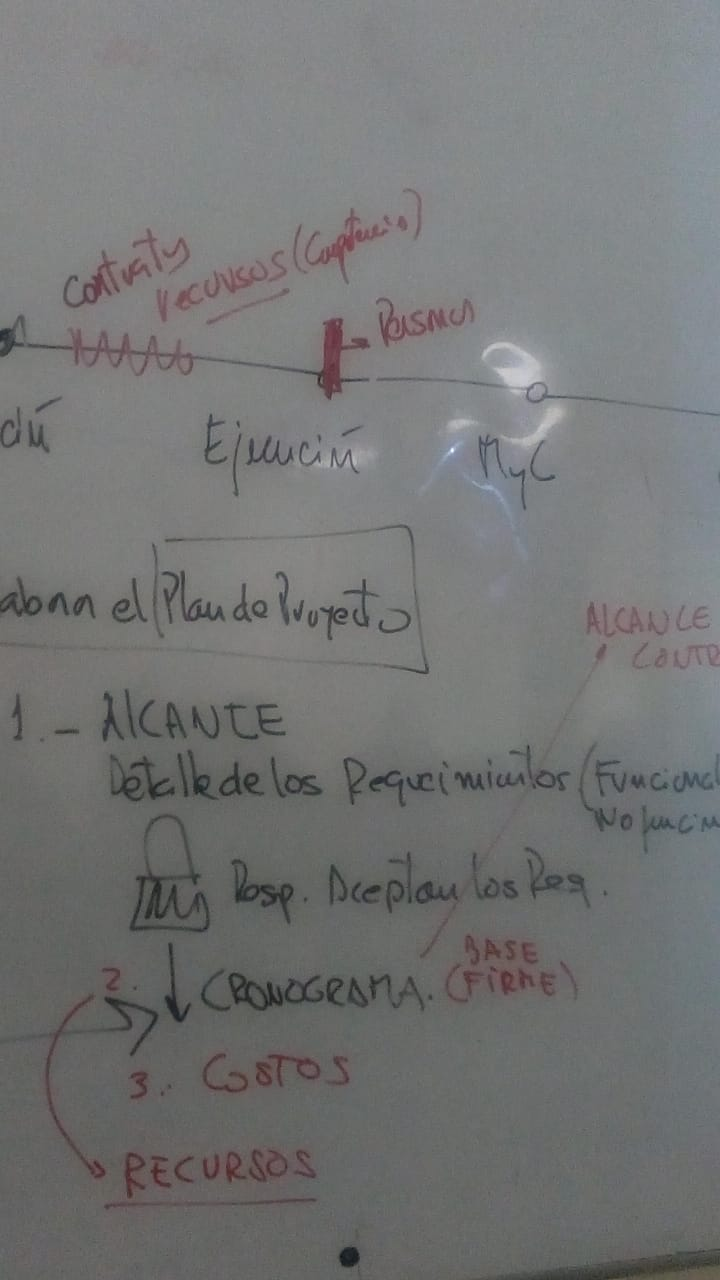 Contrato
recursos (Captació)
Ejecución
MyC
el Plan de Proyecto
ALCANCE
CONTR
1.- AlCANCE
Detalle de los Requerimientos (Funcional
No funcion
Resp. Aceptan los Req.
BASE
2. CRONOGRAMA. (FIRME)
3. COSTOS
RECURSOS